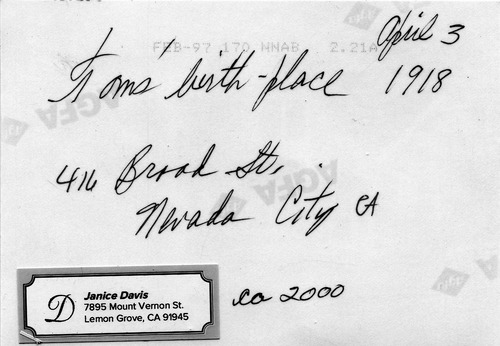 FEB-97 170 NNAB 2.21A
April 3
Tom's birth-place 1918
416 Broad St.
Nevada City CA
ca 2000
D
Janice Davis
7895 Mount Vernon St.
Lemon Grove, CA 91945
AGFA
AGFA
AGFA